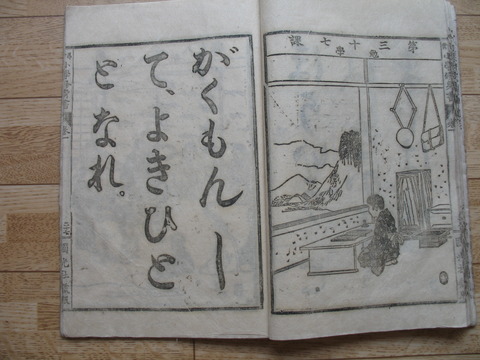 第三十七課
勉學
がくもんし
て、よきひと
となれ。